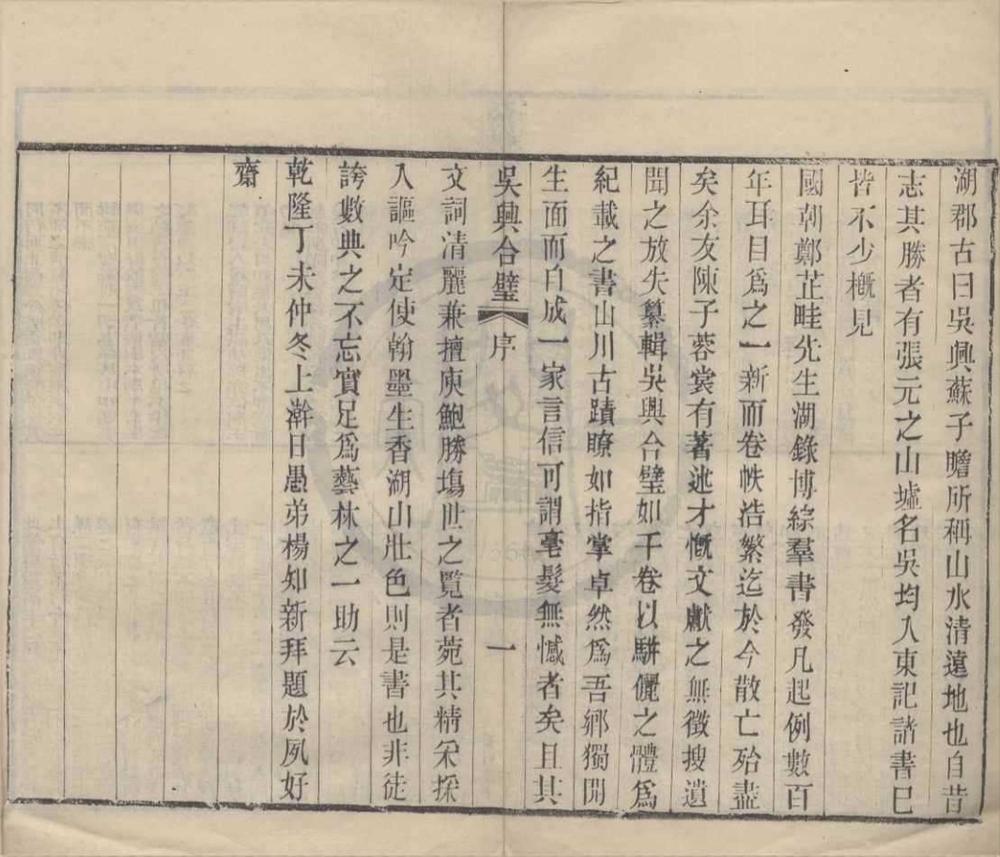 湖郡古曰吳興蘇子瞻所稱山水清遠地也自昔
志其勝者有張元之山墟名吳均入東記諸書已
皆不少槪見
國朝鄭芷畦先生湖錄博綜羣書發凡起例數百
年耳目爲之一新而卷帙浩繁迄於今散亡殆盡
矣余友陳子蓉裳有著述才慨文獻之無徵搜遺
聞之放失纂輯吳興合璧如干卷以駢儷之體爲
紀載之書山川古蹟瞭如指掌卓然爲吾鄉獨開
生面而自成一家言信可謂毫髮無憾者矣且其
吳興合璧 序 一
文詞清麗兼擅庾鮑勝塲世之覽者菀其精采採
入謳吟定使翰墨生香湖山壯色則是書也非徒
誇數典之不忘實足爲藝林之一助云
乾隆丁未仲冬上澣日愚弟楊知新拜題於夙好
齋